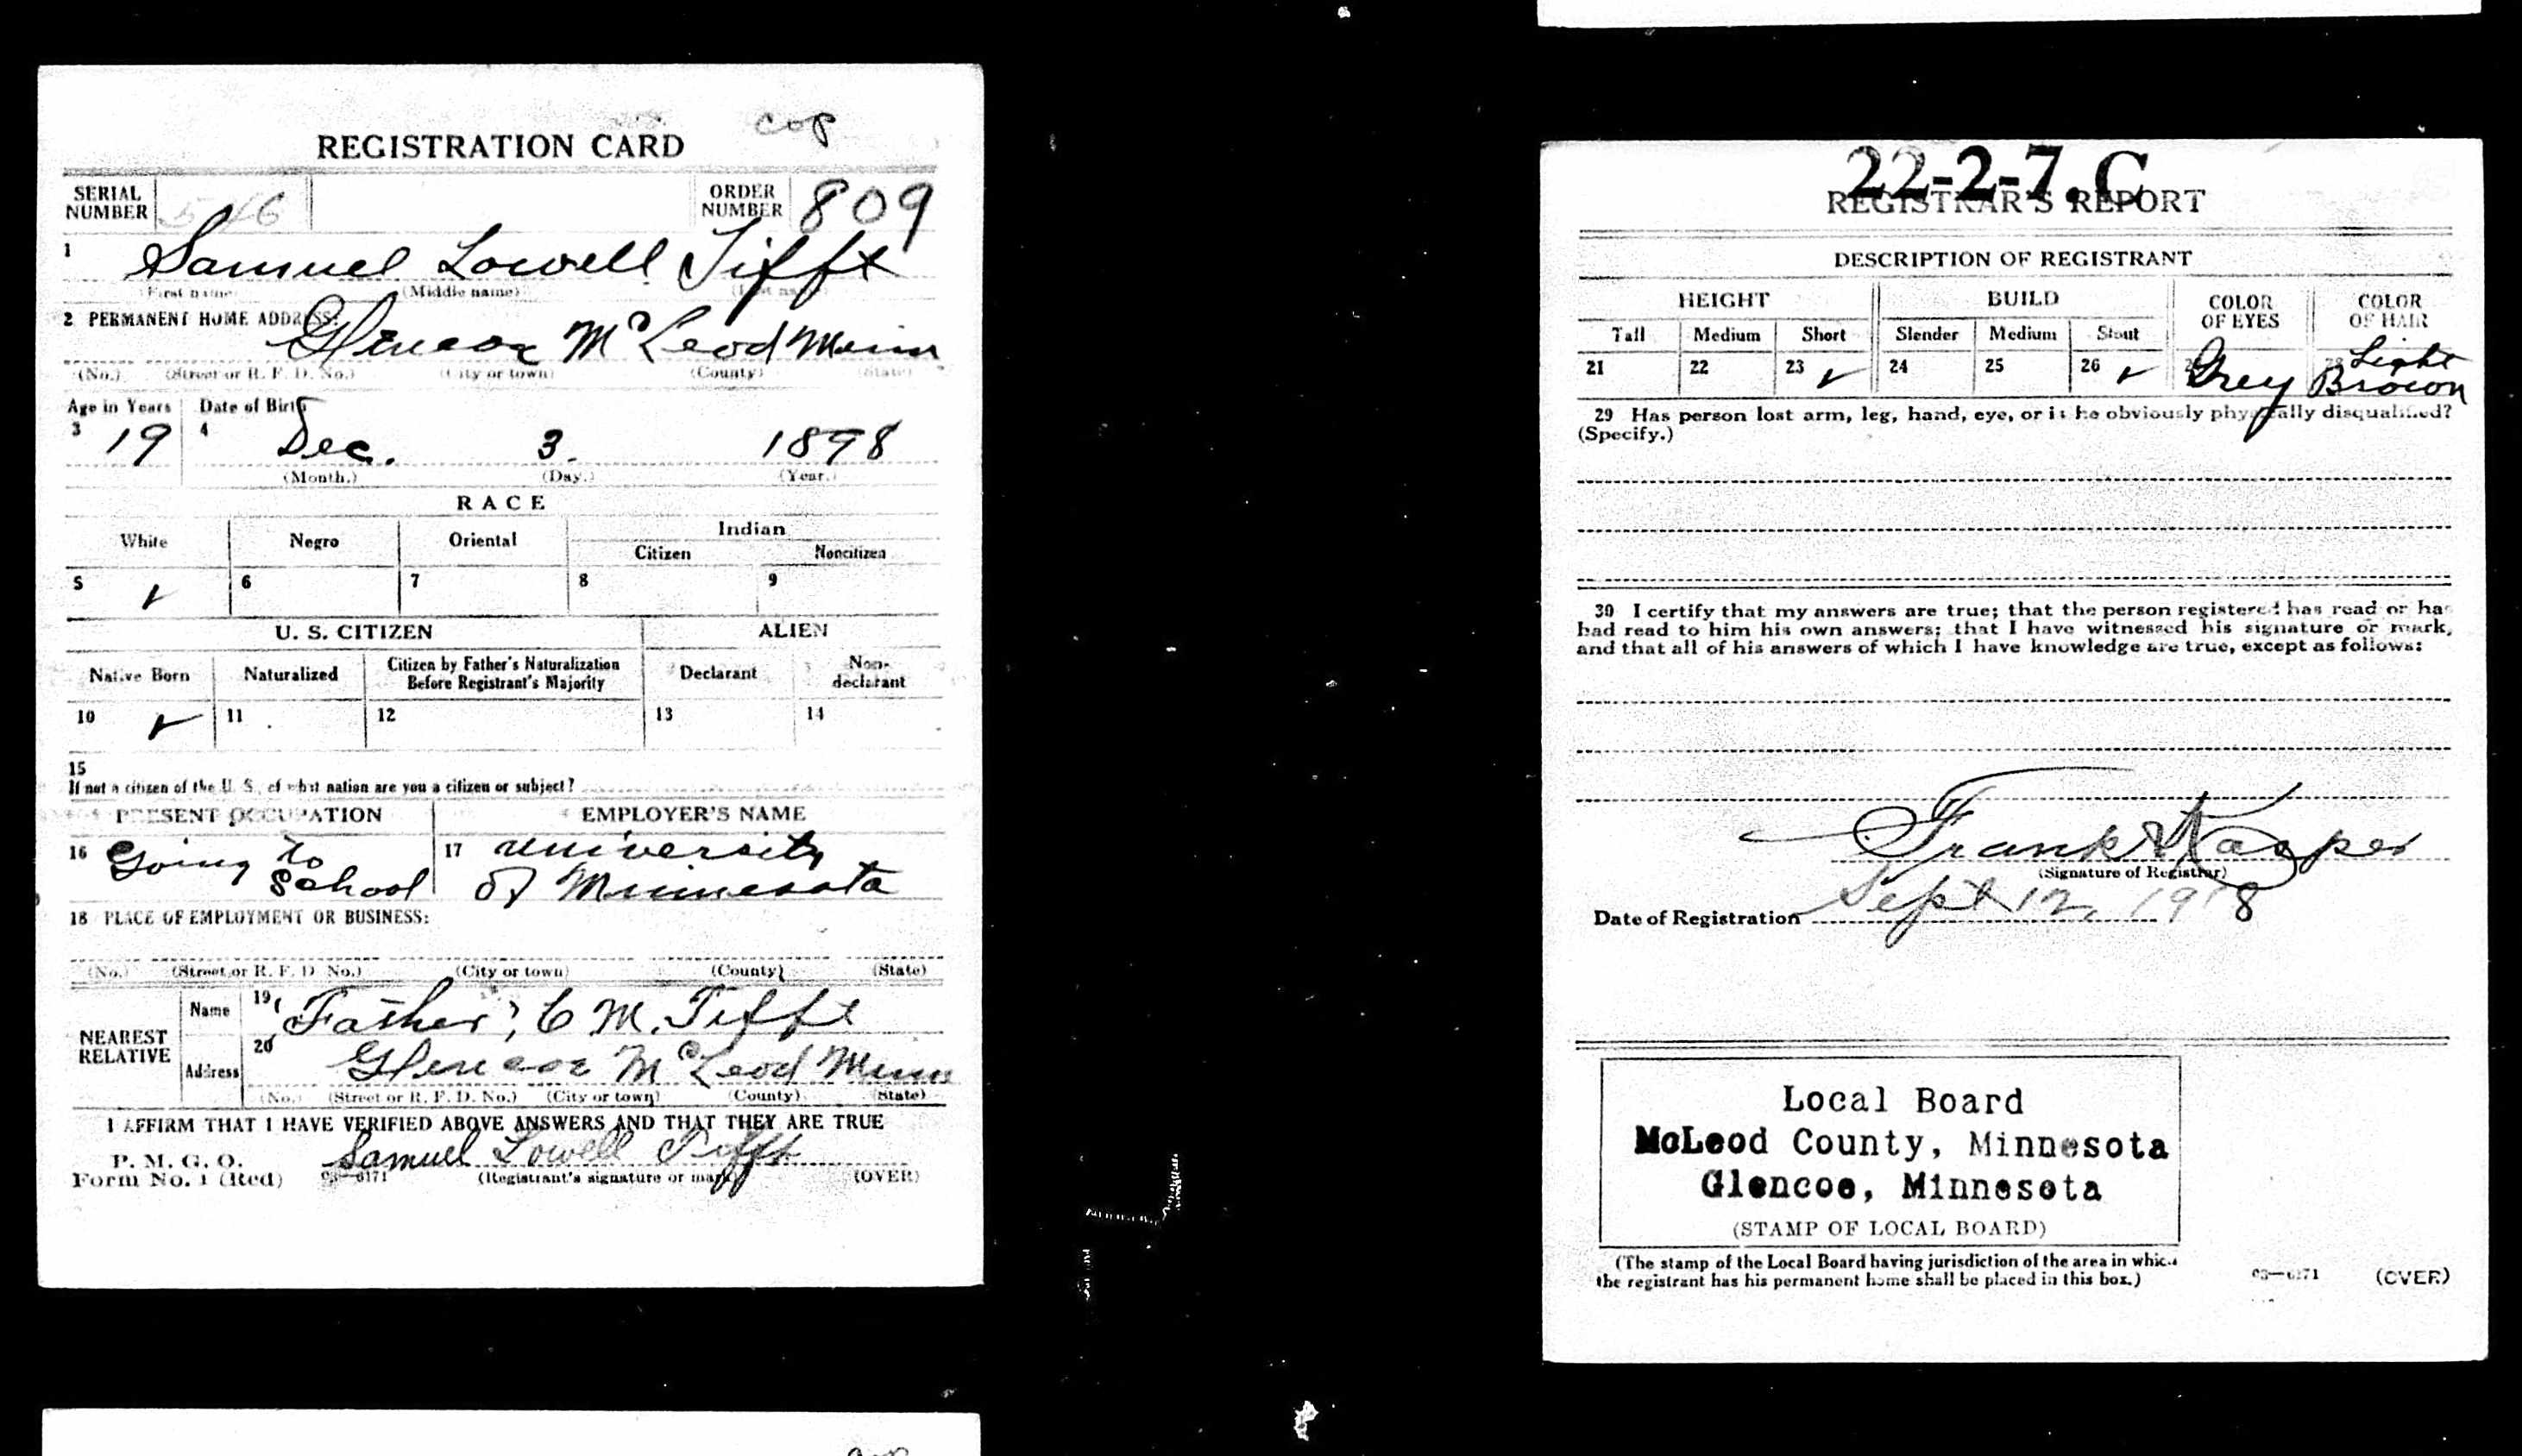 cop
REGISTRATION CARD
SERIAL NUMBER 546 ORDER NUMBER 809
1 Samuel Lowell Tifft
(First name) (Middle name) (Last name)
2 PERMANENT HOME ADDRESS:
Glencoe McLeod Minn
(No.) (Street or R. F. D. No.) (City or town) (County) (State)
Age in Years Date of Birth
3 19 4 Dec. 3. 1898
(Month.) (Day.) (Year.)
RACE
White Negro Oriental Indian
Citizen Noncitizen
5 ✓ 6 7 8 9
U. S. CITIZEN ALIEN
Native Born Naturalized Citizen by Father's Naturalization Before Registrant's Majority Declarant Non-declarant
10 ✓ 11 12 13 14
15
If not a citizen of the U. S., of what nation are you a citizen or subject?
PRESENT OCCUPATION EMPLOYER'S NAME
16 Going to School 17 University of Minnesota
18 PLACE OF EMPLOYMENT OR BUSINESS:
(No.) (Street or R. F. D. No.) (City or town) (County) (State)
NEAREST RELATIVE
Name 19 (Father) C M. Tifft
Address 20 Glencoe McLeod Minn
(No.) (Street or R. F. D. No.) (City or town) (County) (State)
I AFFIRM THAT I HAVE VERIFIED ABOVE ANSWERS AND THAT THEY ARE TRUE
P. M. G. O.
Form No. 1 (Red) 03—6171 Samuel Lowell Tifft
(Registrant's signature or mark) (OVER)
22-2-7. C
REGISTRAR'S REPORT
DESCRIPTION OF REGISTRANT
HEIGHT BUILD COLOR OF EYES COLOR OF HAIR
Tall Medium Short Slender Medium Stout
21 22 23 ✓ 24 25 26 ✓ Grey Light Brown
29 Has person lost arm, leg, hand, eye, or is he obviously physically disqualified?
(Specify.)
30 I certify that my answers are true; that the person registered has read or has
had read to him his own answers; that I have witnessed his signature or mark,
and that all of his answers of which I have knowledge are true, except as follows:
Frank Kasper
(Signature of Registrar)
Date of Registration Sept 12, 1918
Local Board
McLeod County, Minnesota
Glencoe, Minnesota
(STAMP OF LOCAL BOARD)
(The stamp of the Local Board having jurisdiction of the area in which
the registrant has his permanent home shall be placed in this box.)
03—6171 (OVER)